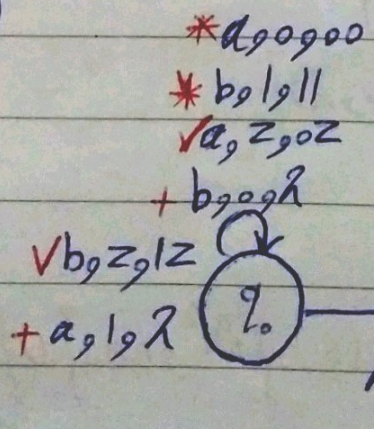 *a,0,00
*b,1,11
✓a,z,0z
+b,0,λ
✓b,z,1z
+a,1,λ
q₀